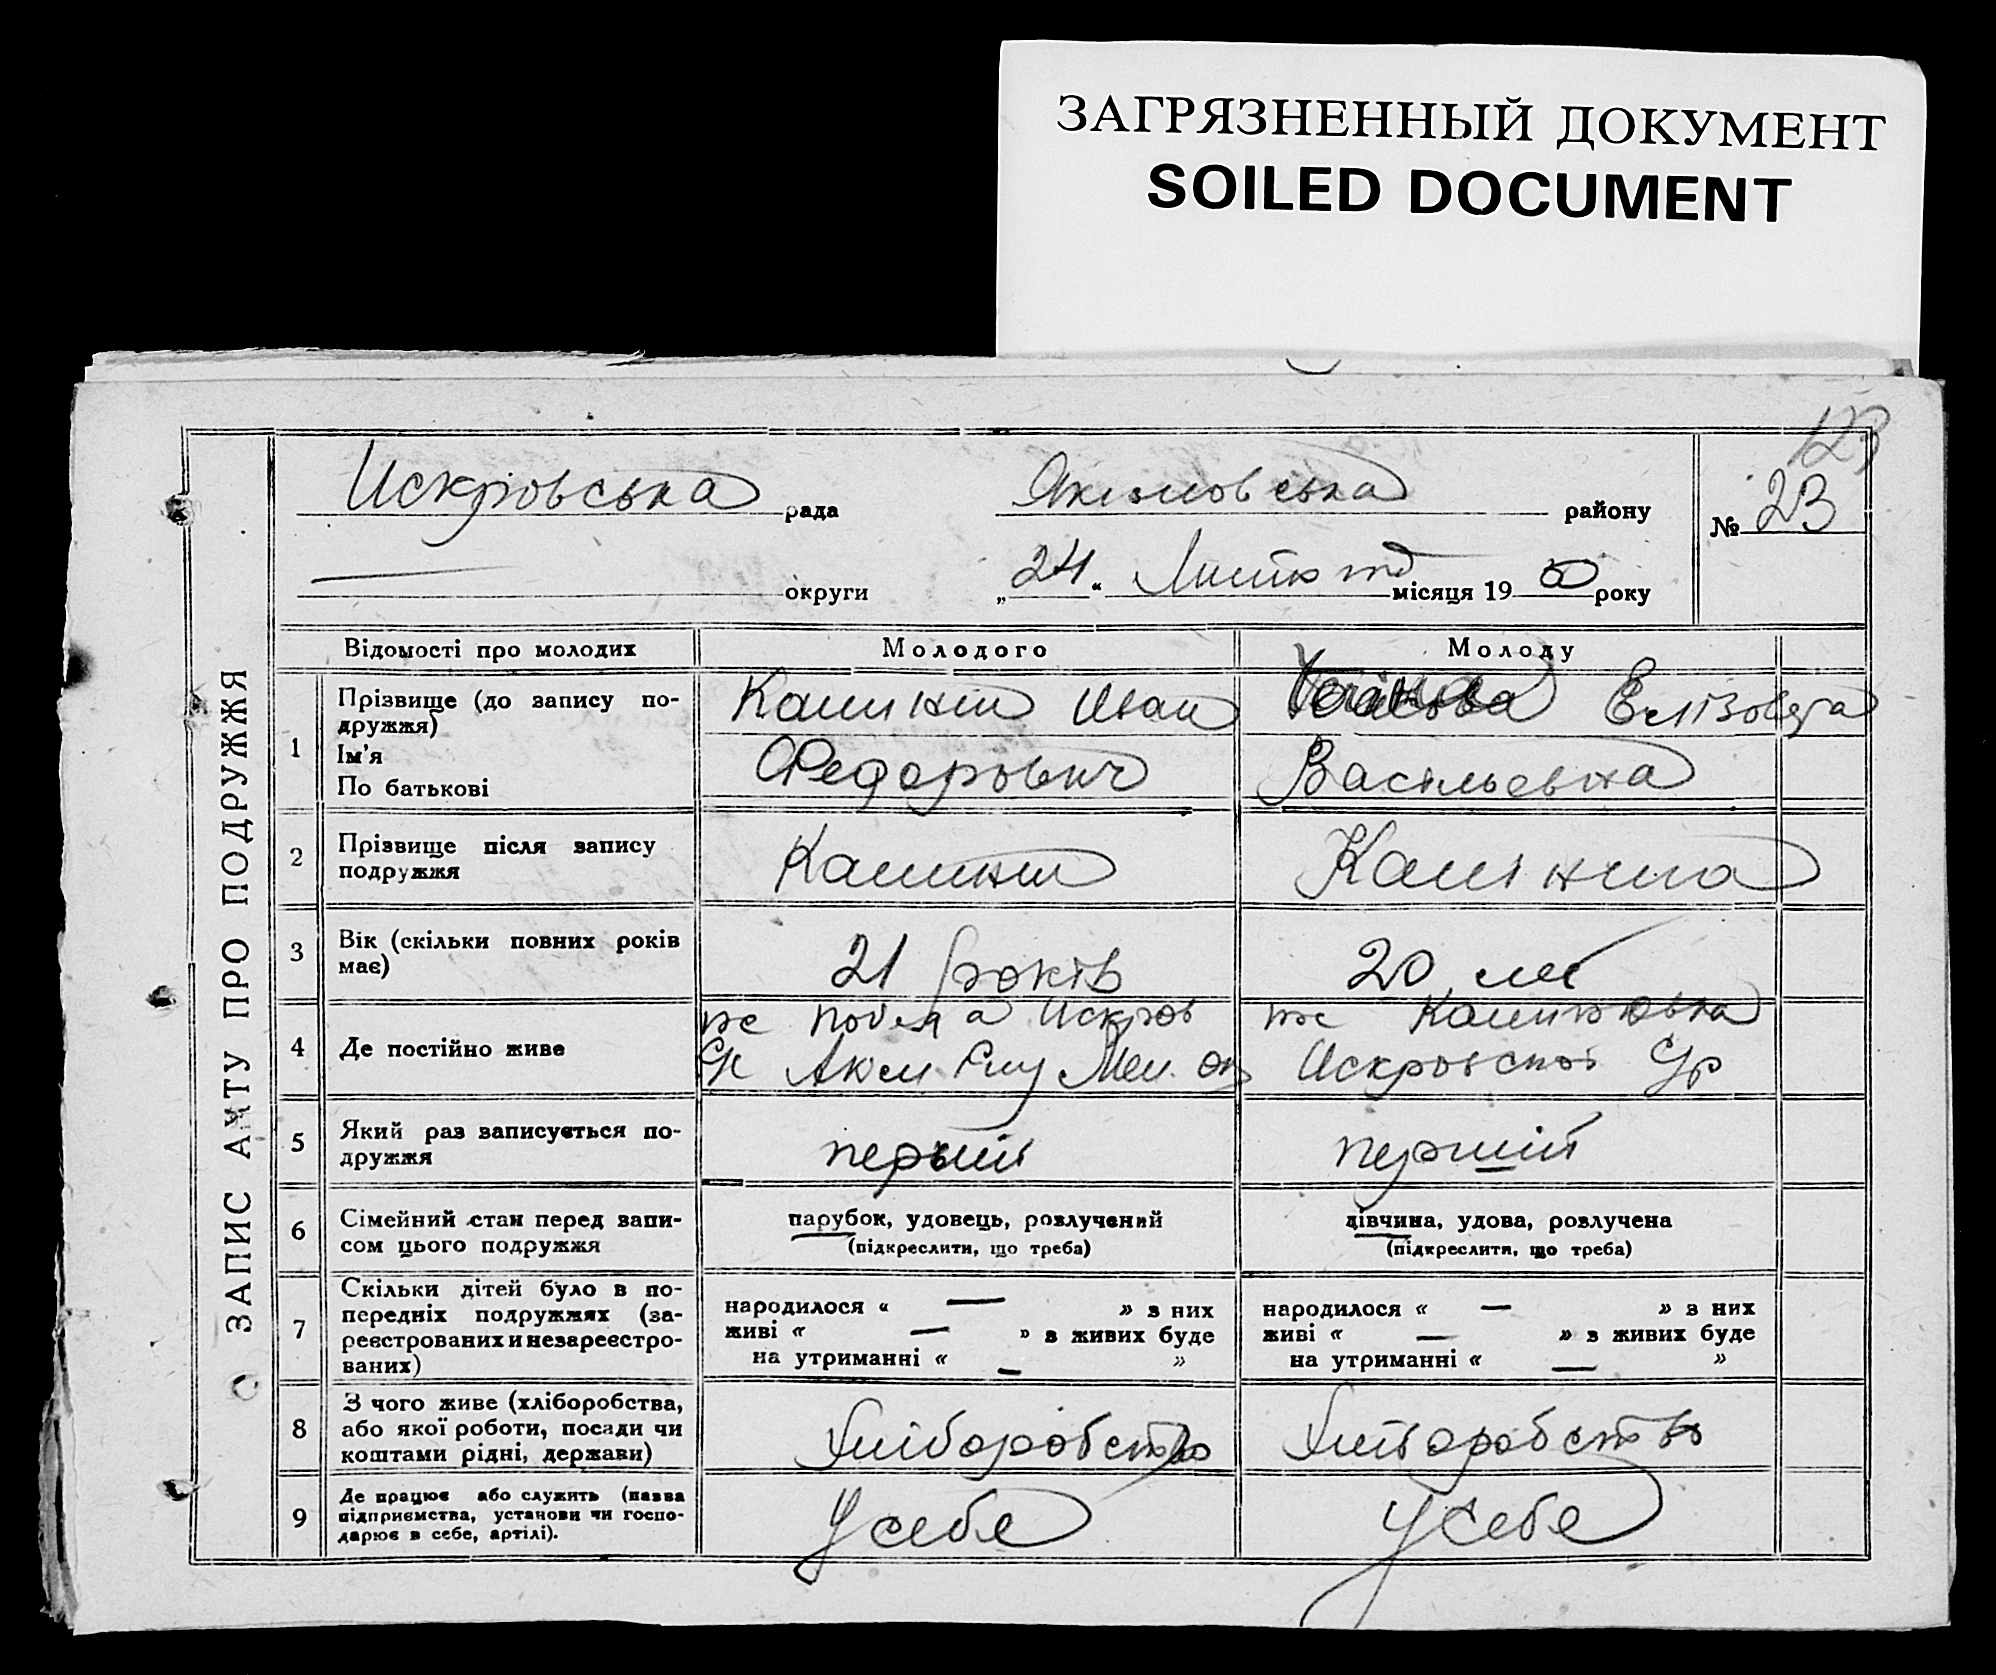 ЗАГРЯЗНЕННЫЙ ДОКУМЕНТ
SOILED DOCUMENT
123
ЗАПИС АКТУ ПРО ПОДРУЖЖЯ
Искровська рада
района
№ 23
округи „24“ місяця 19 року
Відомості про молодих
Молодого
Молоду
1
Прізвище (до запису по-
дружжя)
Ім'я
По батькові
Иван
Федорович
Елізовета
Васильевна
2
Прізвище після запису
подружжя
3
Вік (скільки повних років
має)
21 років
20 лет
4
Де постійно живе
Победа Искров
Искровской С/р
5
Який раз записується по-
дружжя
первий
перший
6
Сімейний стан перед запи-
сом цього подружжя
парубок, удовець, розлучений
(підкреслити, що треба)
дівчина, удова, розлучена
(підкреслити, що треба)
7
Скільки дітей було в по-
передніх подружжях (за-
реєстрованих и незареєстро-
ваних)
народилося « — » з них
живі « — » з живих буде
на утриманні « — »
народилося « — » з них
живі « — » з живих буде
на утриманні « — »
8
З чого живе (хліборобства,
або якої роботи, посади чи
коштами рідні, держави)
Хліборобство
Хліборобство
9
Де працює або служить (назва
підприємства, установи чи госпо-
дарює в себе, артілі).
У себе
У себе